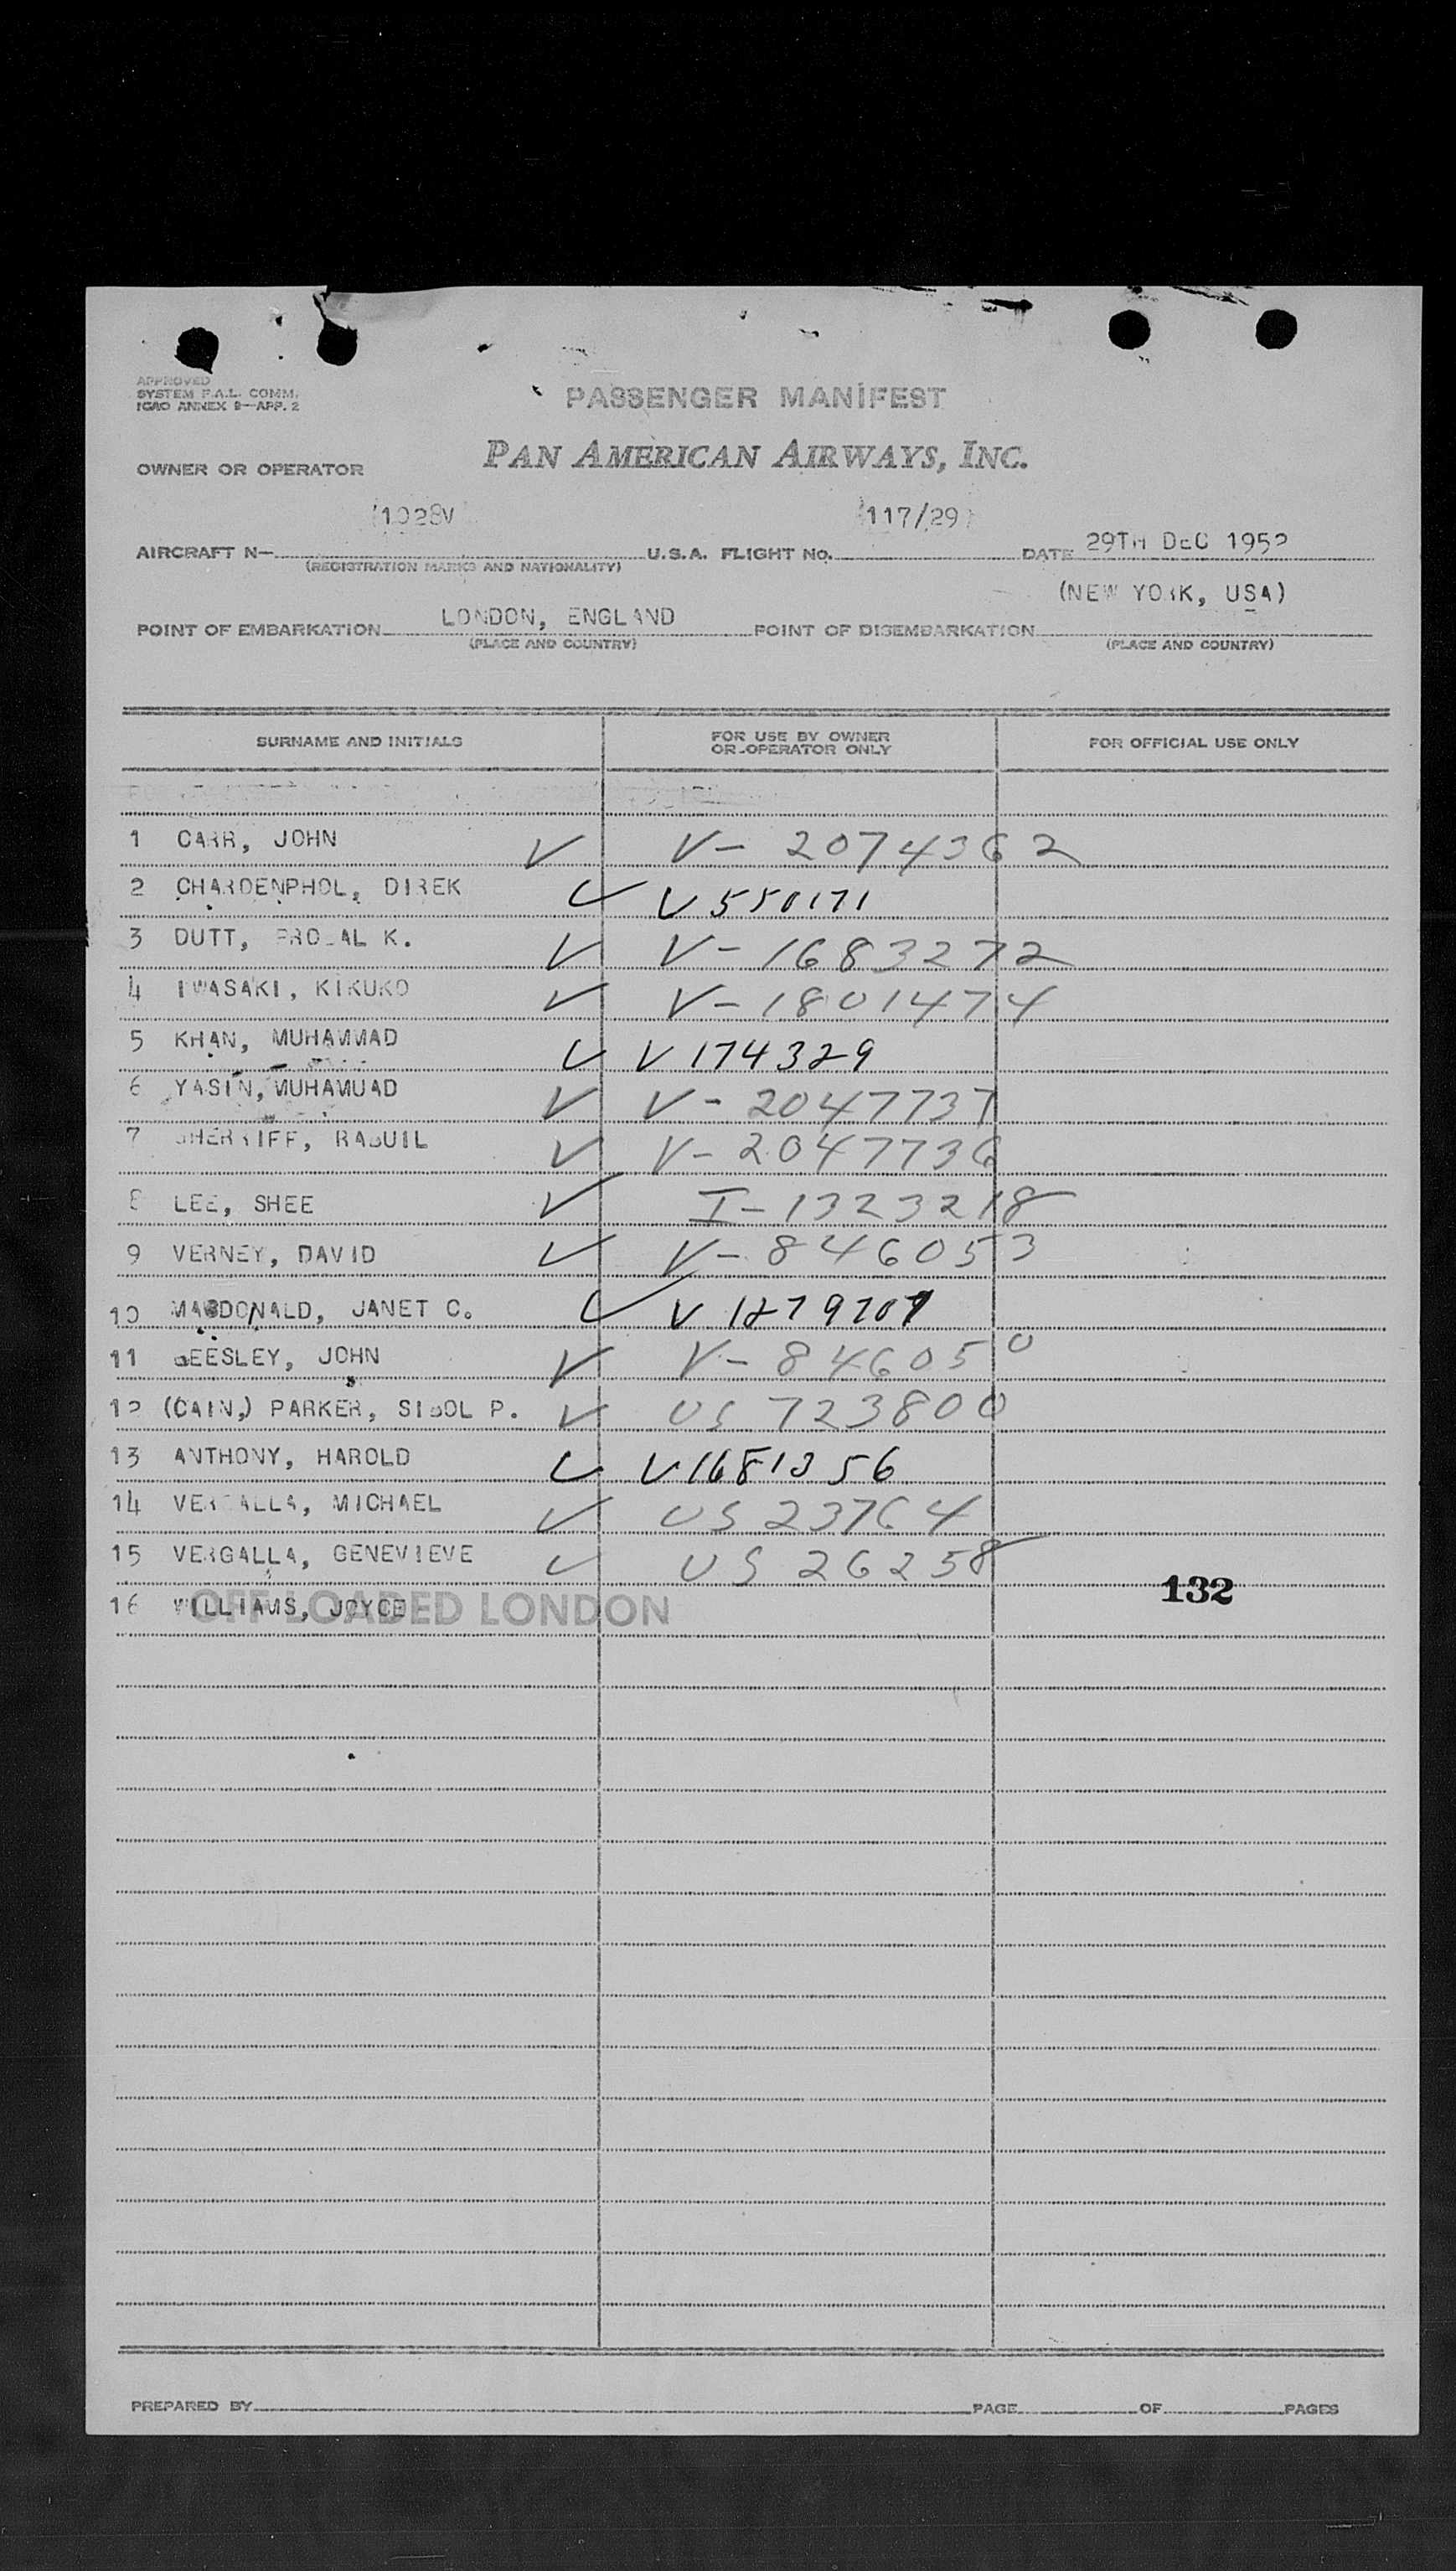 APPROVED
SYSTEM F.A.L. COMM.
ICAO ANNEX 9—APP. 2
PASSENGER MANIFEST
OWNER OR OPERATOR PAN AMERICAN AIRWAYS, INC.
(1028V) (117/29)
AIRCRAFT N— U.S.A. FLIGHT No. DATE 29TH DEC 1952
(REGISTRATION MARKS AND NATIONALITY)
(NEW YORK, USA)
POINT OF EMBARKATION LONDON, ENGLAND POINT OF DISEMBARKATION
(PLACE AND COUNTRY) (PLACE AND COUNTRY)
SURNAME AND INITIALS FOR USE BY OWNER OR OPERATOR ONLY FOR OFFICIAL USE ONLY
1 CARR, JOHN ✓ V- 2074362
2 CHAROENPHOL, DIREK ✓ V550171
3 DUTT, K. ✓ V-1683272
4 IWASAKI, KIKUKO ✓ V-1801474
5 KHAN, MUHAMMAD ✓ V174329
6 YASIN, MUHAMMAD ✓ V-2047737
7 SHERRIFF, ✓ V-2047736
8 LEE, SHEE ✓ I-1323218
9 VERNEY, DAVID ✓ V-846053
10 MACDONALD, JANET C. ✓ V
11 BEESLEY, JOHN ✓ V-846050
12 (CAIN,) PARKER, P. ✓ US 723800
13 ANTHONY, HAROLD ✓ V1681356
14 VERGALLA, MICHAEL ✓ US 23764
15 VERGALLA, GENEVIEVE ✓ US 26258
16 WILLIAMS, JOYCE
OFF LOADED LONDON
132
PREPARED BY PAGE OF PAGES